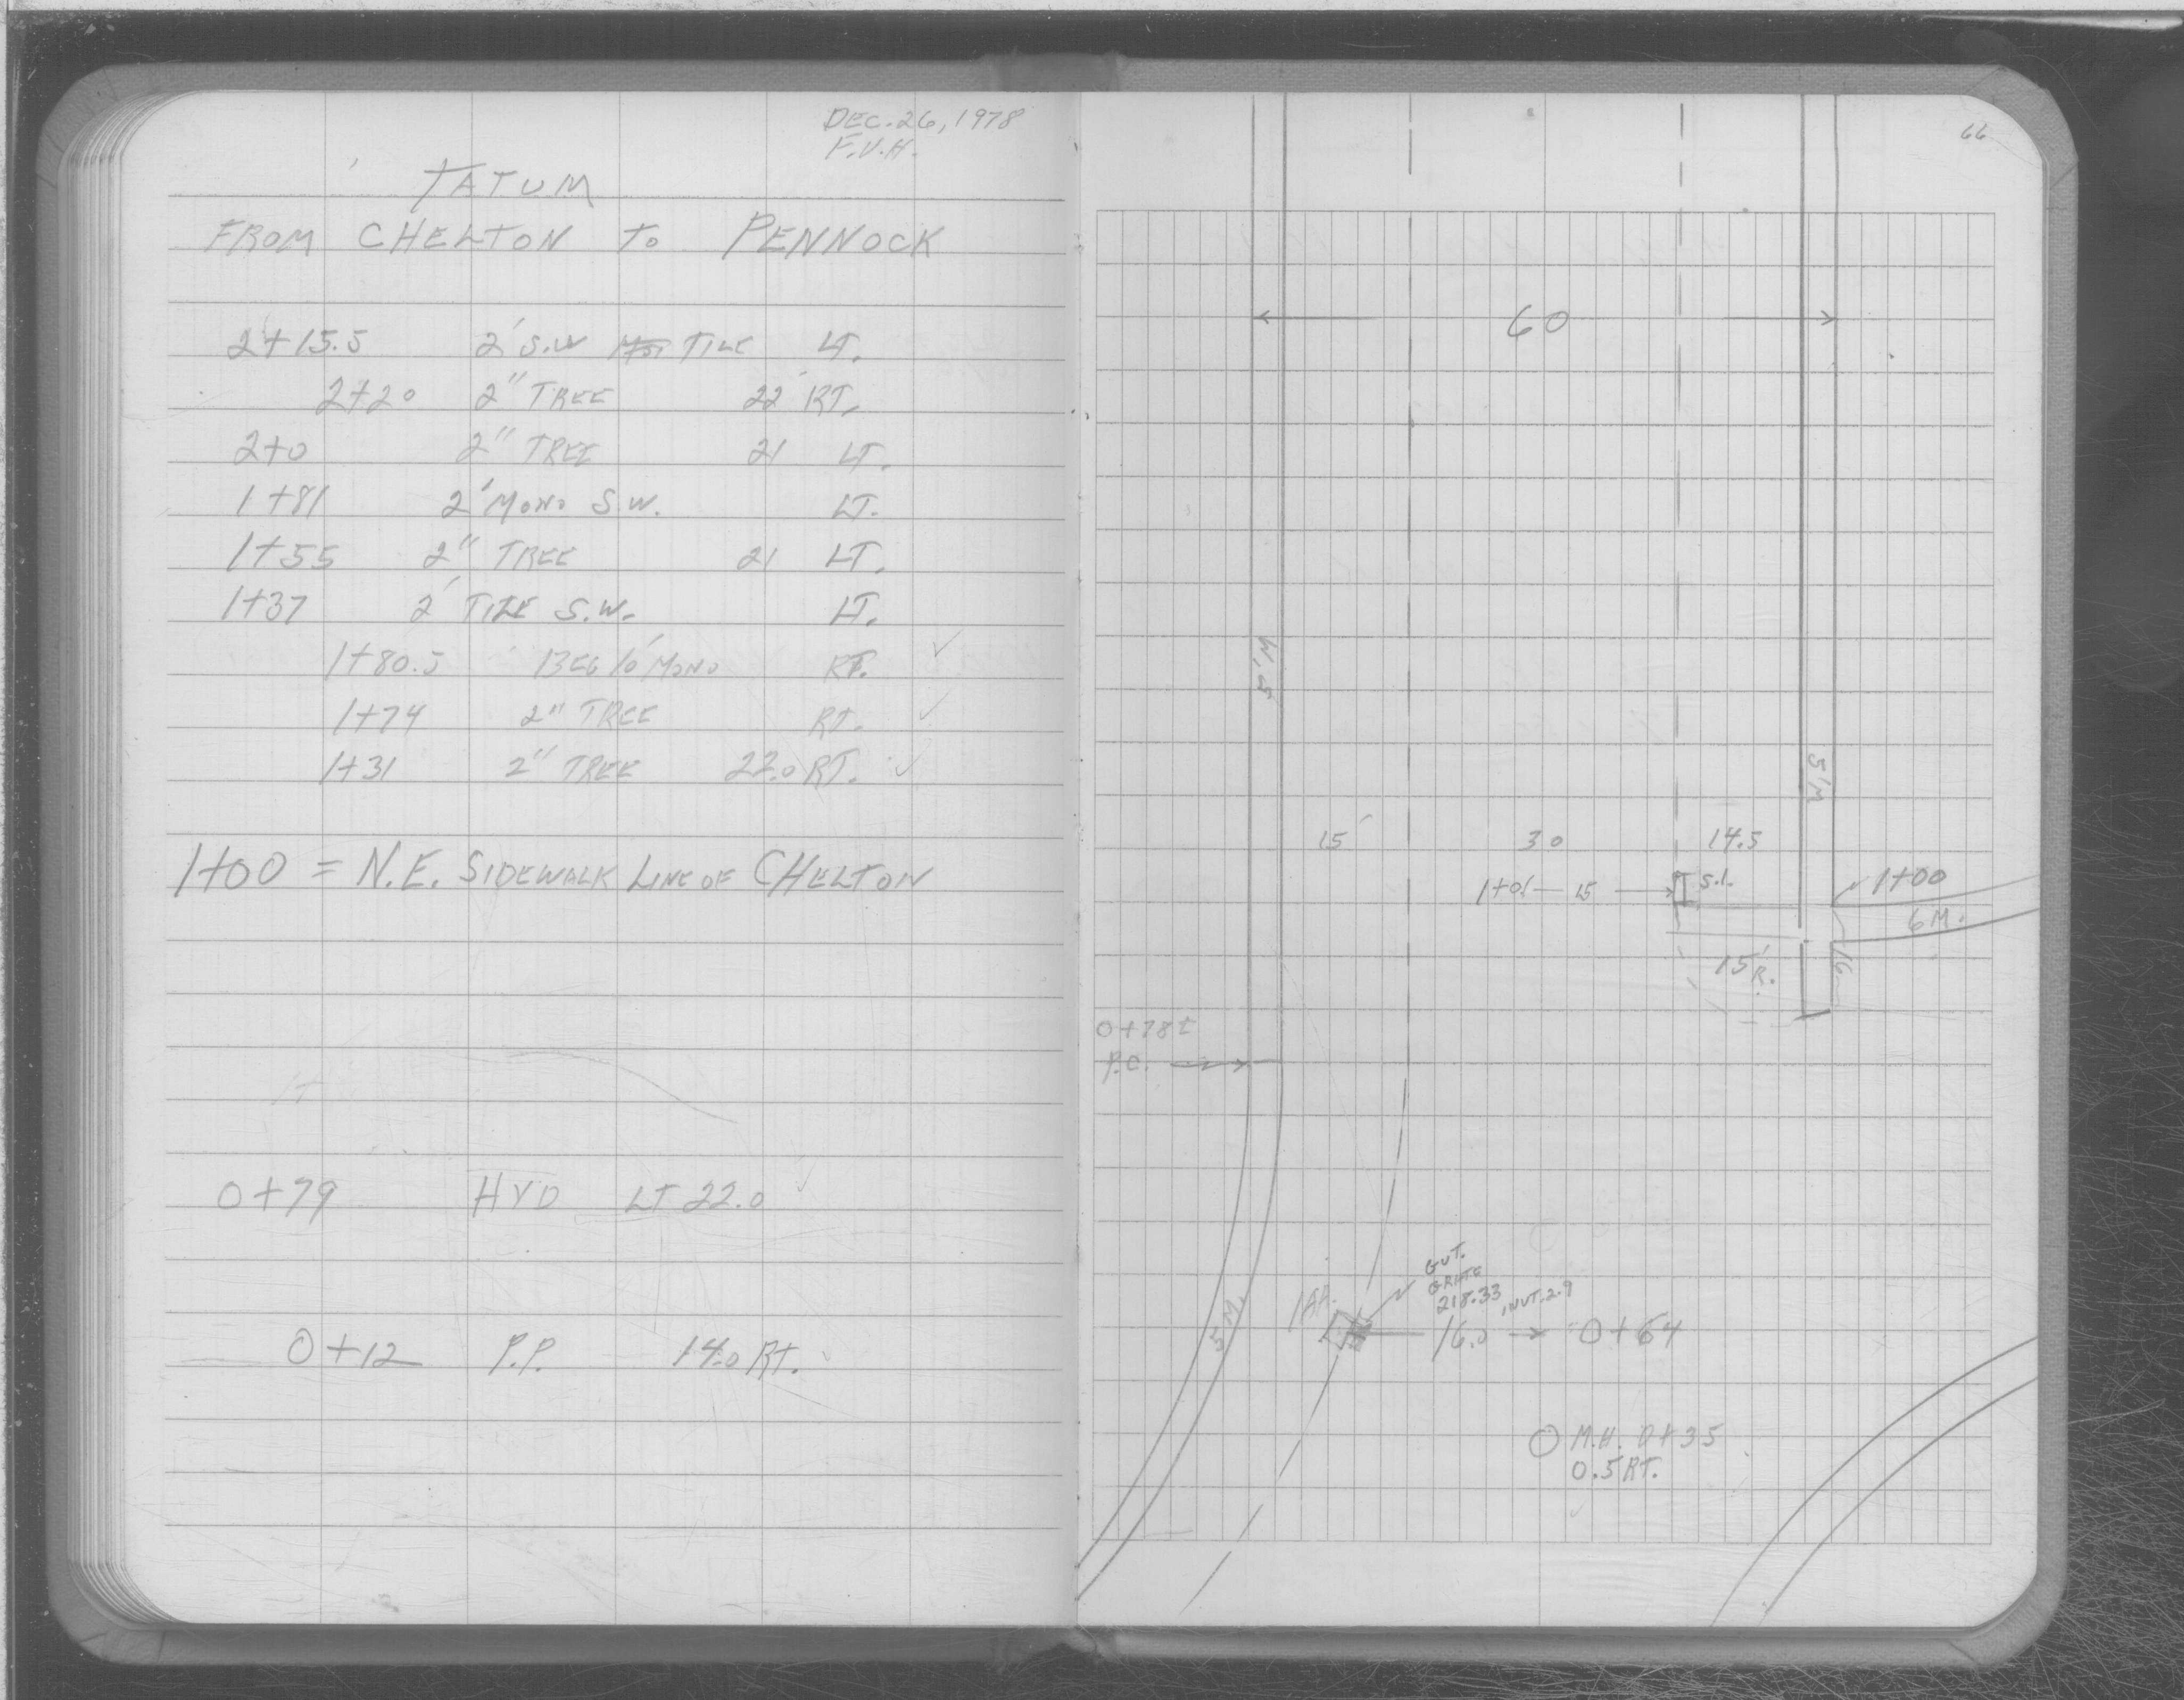 DEC. 26, 1978
F.V.H.
TATUM
FROM CHELTON TO PENNOCK
2+15.5 2' S.W TILE LT.
2+20 2" TREE 22' RT.
2+0 2" TREE 21 LT.
1+81 2' MONO S.W. LT.
1+55 2" TREE 21 LT.
1+37 2' TILE S.W. LT.
1+80.5 BEG 10' MONO RT. ✓
1+74 2" TREE RT. ✓
1+31 2" TREE 22.0 RT. ✓
1+00 = N.E. SIDEWALK LINE OF CHELTON
0+79 HYD LT 22.0 ✓
0+12 P.P. 14.0 RT.
66
60
5'M
15' 30 14.5
1+01 — 15 S.I. 1+00
6M.
15'R. 16
0+78±
P.C.
GUT.
GRATE
218.33 INVT. 2.9
16.0 0+64
5'M.
M.H. 0+35
0.5 RT.